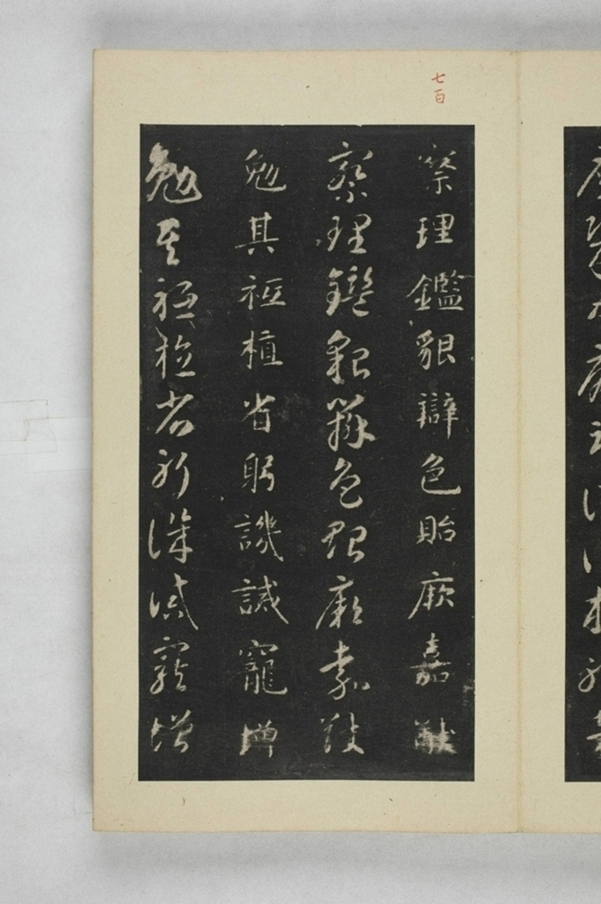 七百
察理鑑貌辯色貽厥嘉猷
察理鑑貌辯色貽厥嘉猷
勉其祗植省躬譏誡寵增
勉其祗植省躬譏誡寵增